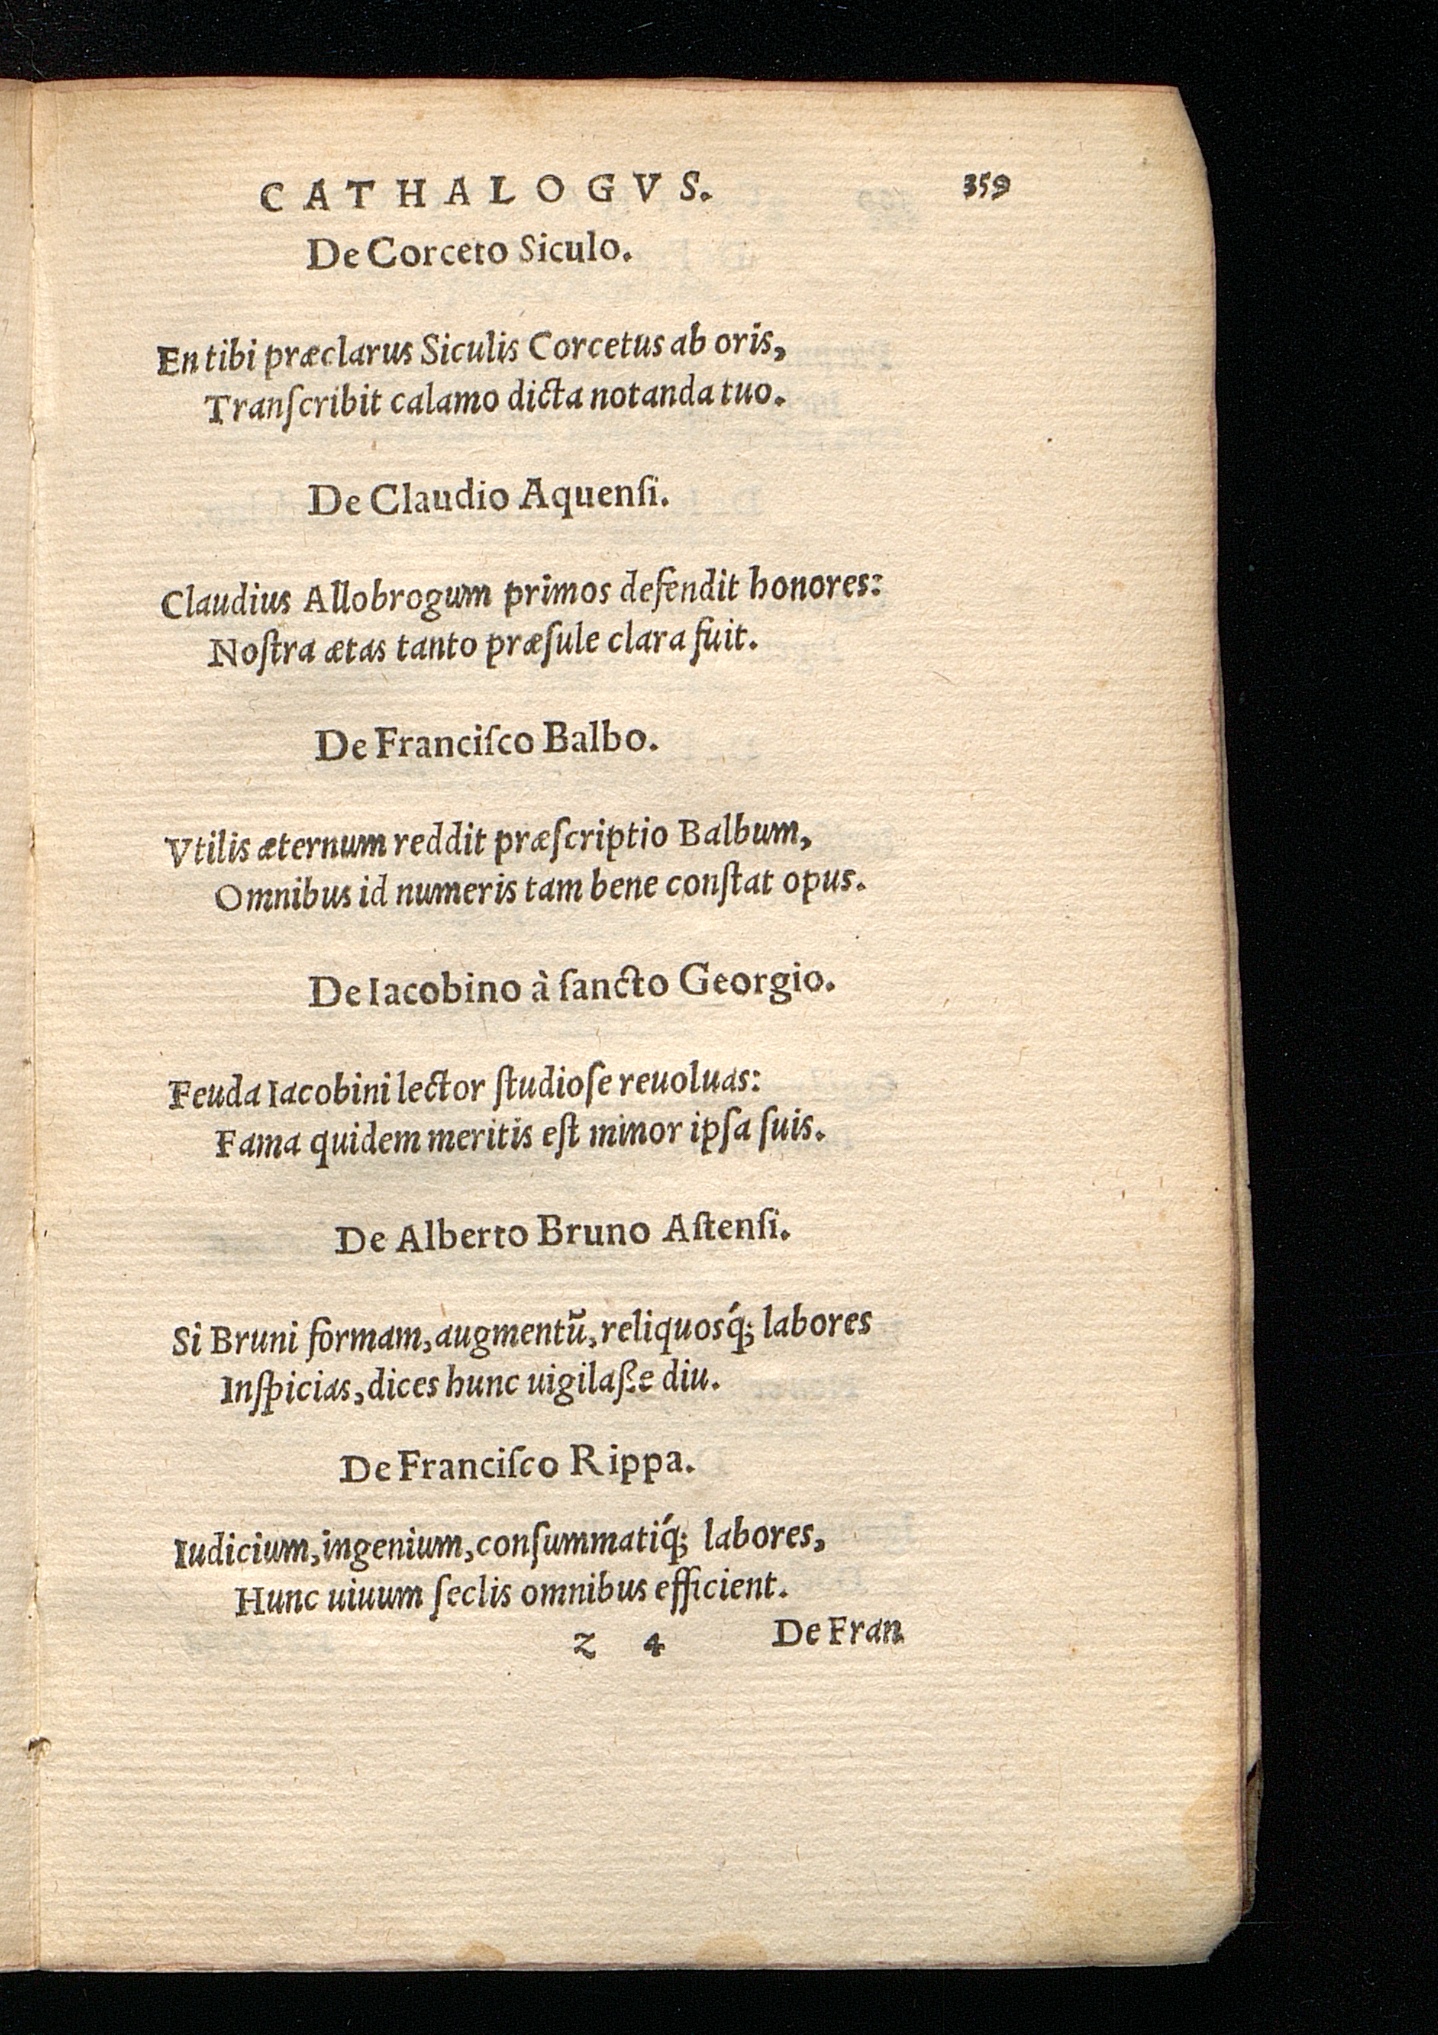 CATHALOGVS. 359
De Corceto Siculo.
En tibi præclarus Siculis Corcetus ab oris,
Tranſcribit calamo dicta notanda tuo.
De Claudio Aquenſi.
Claudius Allobrogum primos defendit honores:
Noſtra ætas tanto præſule clara fuit.
De Franciſco Balbo.
Vtilis æternum reddit præſcriptio Balbum,
Omnibus id numeris tam bene conſtat opus.
De Iacobino à ſancto Georgio.
Feuda Iacobini lector ſtudioſe reuoluas:
Fama quidem meritis eſt minor ipſa ſuis.
De Alberto Bruno Aſtenſi.
Si Bruni formam, augmentũ, reliquosq́; labores
Inſpicias, dices hunc uigilaſſe diu.
De Franciſco Rippa.
Iudicium, ingenium, conſummatiq́; labores,
Hunc uiuum ſeclis omnibus efficient.
z 4 De Fran